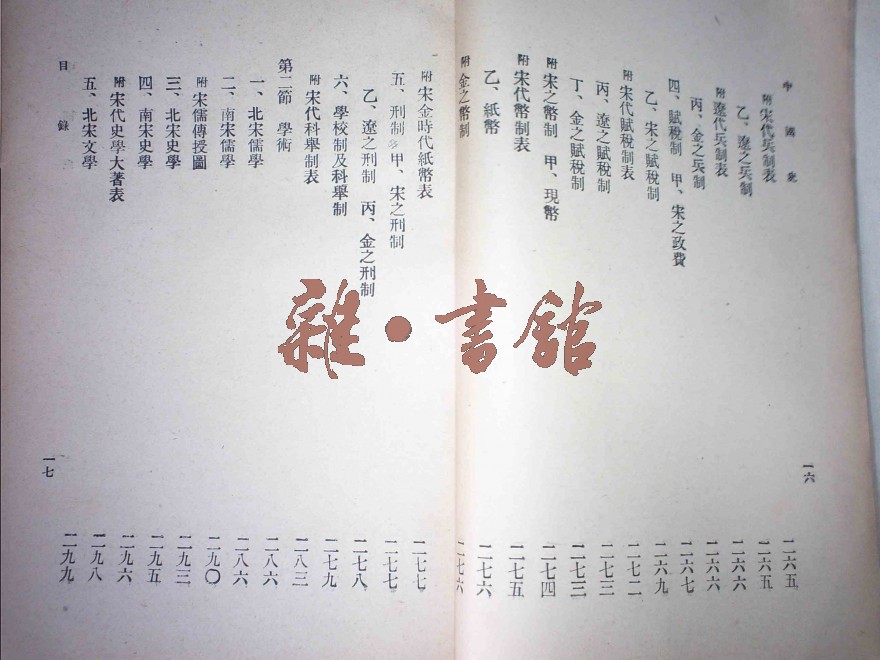 中國史
附宋代兵制表 二六五
乙、遼之兵制 二六五
附遼代兵制表 二六六
丙、金之兵制 二六六
四、賦稅制 甲、宋之政費 二六七
乙、宋之賦稅制 二六九
附宋代賦稅制表 二七二
丙、遼之賦稅制 二七三
丁、金之賦稅制 二七三
附宋之幣制 甲、現幣 二七四
附宋代幣制表 二七五
乙、紙幣 二七六
附金之幣制 二七六
一六
附宋金時代紙幣表 二七七
五、刑制 甲、宋之刑制 二七七
乙、遼之刑制 丙、金之刑制 二七八
六、學校制及科舉制 二七九
附宋代科舉制表 二八三
第二節 學術 二八六
一、北宋儒學 二八六
二、南宋儒學 二九〇
附宋儒傳授圖 二九三
三、北宋史學 二九五
四、南宋史學 二九六
附宋代史學大著表 二九八
五、北宋文學 二九九
目錄
一七
雜·書館